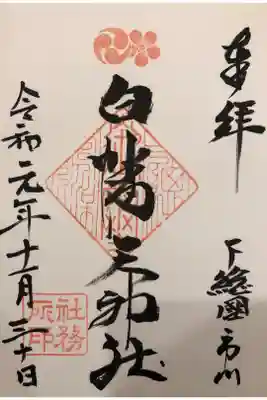 奉拝
下総国市川
白幡天神社
令和元年十一月三十日
社務所印